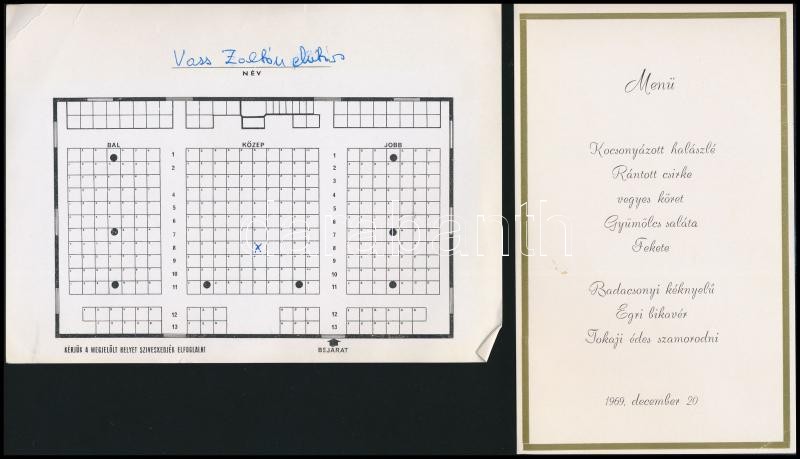 Vass Zoltán elvtárs
NÉV
BAL KÖZÉP JOBB
1 1
2 2
3 3
4 4
5 5
6 6
7 7
8 8
9 9
10 10
11 11
12 12
13 13
KÉRJÜK A MEGJELÖLT HELYET SZIVESKEDJÉK ELFOGLALNI
BEJÁRAT
Menü
Kocsonyázott halászlé
Rántott csirke
vegyes köret
Gyümölcs saláta
Fekete
Badacsonyi kéknyelű
Egri bikavér
Tokaji édes szamorodni
1969. december 20
darabanth